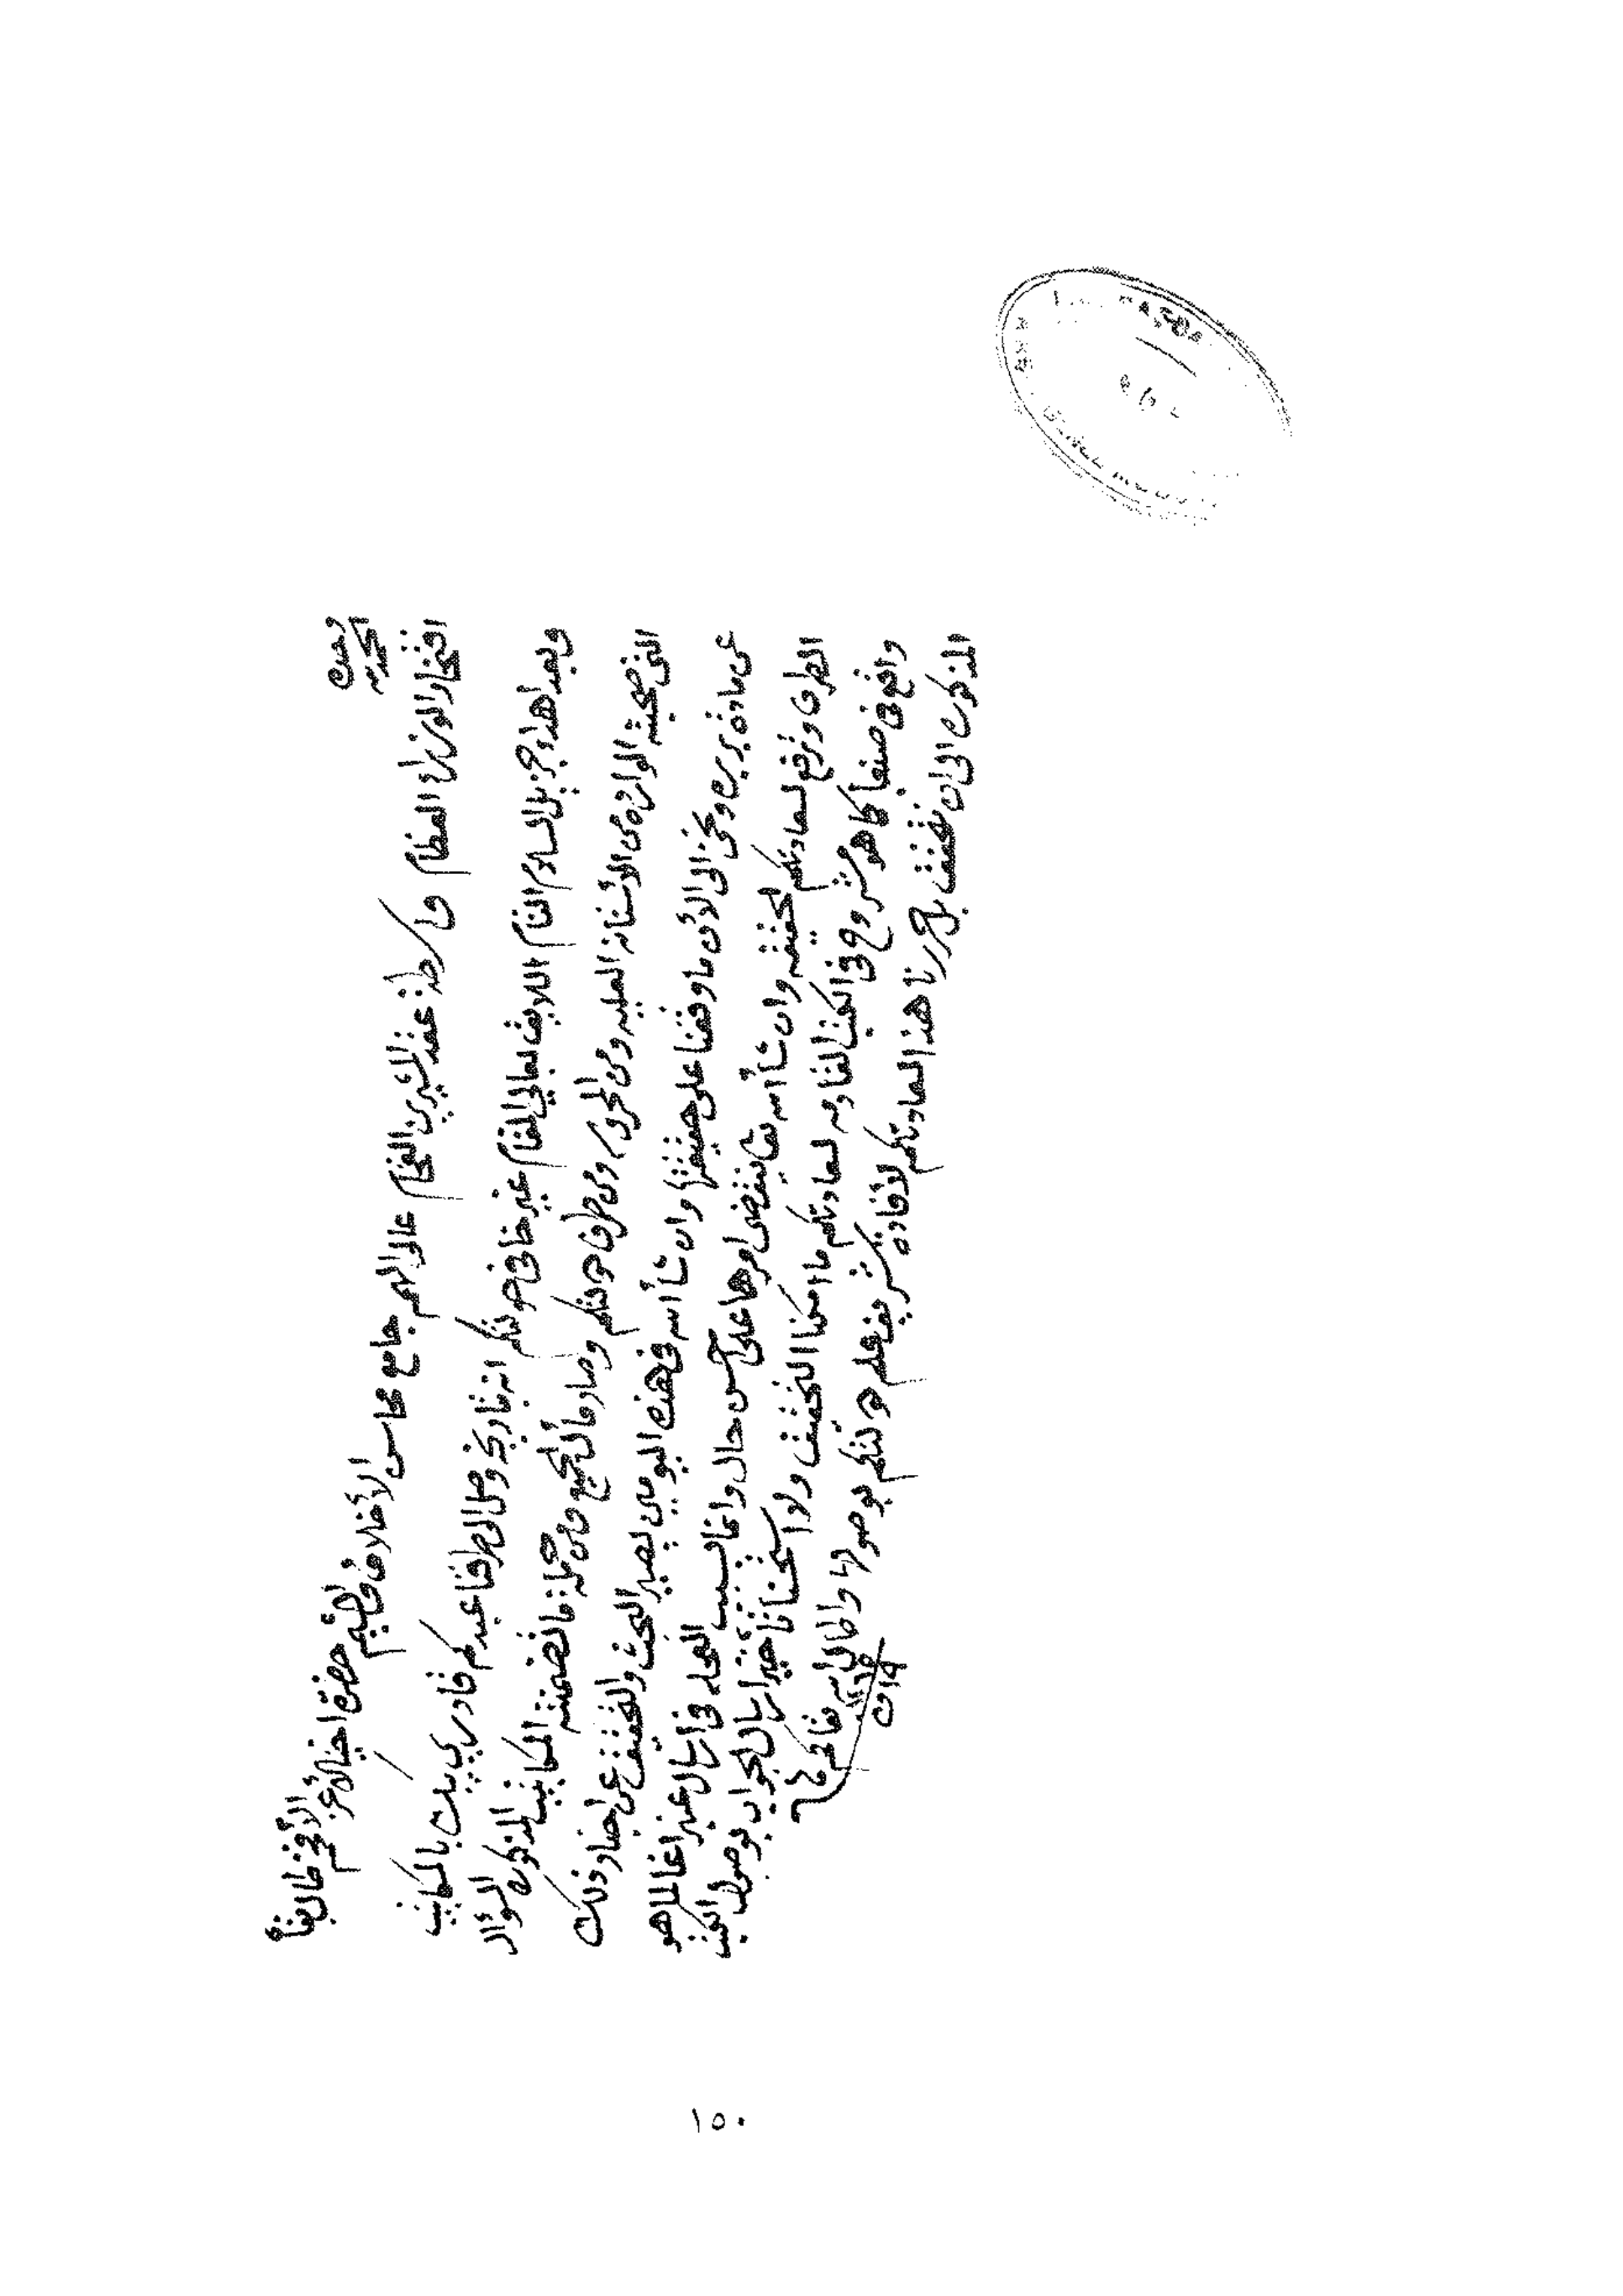 الحمد لله
وحده
افتخار الوزراء العظام واسطة عقد المشيرين الفخام عالي الهمم جامع محاسن الأخلاق والشيم حضرة اخينا الأعز الأفخم طال بقاه
وبعد اهداء جزيل السلام التام اللايق لعالي المقام غير خافي دولتكم انه بتاريخه وصل الى طرفنا عبدكم قادري بيك بالمكاتيب
التي صحبته الواردة من الأستانة العلية ومن المحروسه ومن طرف دولتكم وصار مآل الجميع ومن جملة ما تضمنته المكاتيب المذكوره السؤال
عن مادة بربره ونحن الى الأن ما وقفنا على حقيقتها وان شاء الله في هذه اليومين يصير البحث والتحقيق عن اخبار ذلك
الطرف ونرفع لسعادتكم الحقيقه وان شاء الله تعالى ينقضي امرها على احسن حال وانما بسبب العجله في ارسال عنبر اغا لما هو
واقع في صنعا كما هو مشروح في الكتب القادمه لسعادتكم ما امكنا التحقيق ولا استحسنا تأخير ارسال الجواب بوصول الكتب
المذكوره الى ان نتحقق بل حررنا هذا لسعادتكم لأفادة شريف علم دولتكم بوصولها والله تعالى يبقاكم
١٥٠